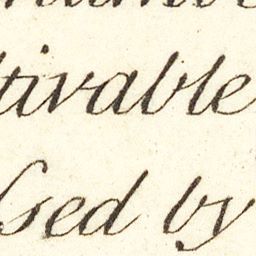 tivable
sed by